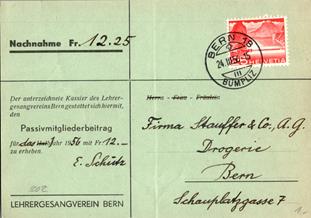 Nachnahme Fr. 12.25
BERN 18
BÜMPLIZ
HELVETIA
Der unterzeichnete Kassier des Lehrer-
gesangvereins Bern gestattet sich hiermit,
den
Passivmitgliederbeitrag
für das Jahr 1956 mit Fr 12.—
zu erheben.
E. Schütz
Herrn - Frau - Fräulein
Firma Stauffer & Co., A.G.
Drogerie
Bern
Schauplatzgasse 7
LEHRERGESANGVEREIN BERN
202
1.-